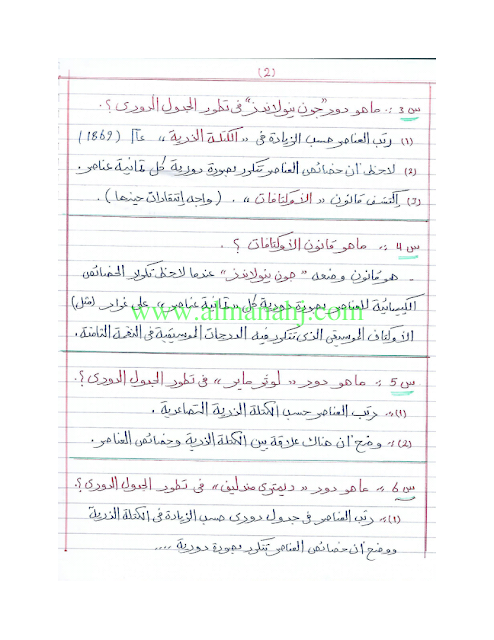 (2)
س3 :. ما هو دور "جون نيولاندز" في تطور الجدول الدوري ؟.
(1) رتب العناصر حسب الزيادة في «الكتلة الذرية» عام (1869)
(2) لاحظ أن خصائص العناصر تتكرر بصورة دورية كل ثمانية عناصر.
(3) اكتشف قانون «الأوكتافات» . (واجه انتقادات حينها) .
س4 :. ما هو قانون الأوكتافات ؟ .
- هو قانون وضعه "جون نيولاندز" عندما لاحظ تكرار الخصائص
الكيميائية للعناصر بصورة دورية كل «ثمانية عناصر» على غرار (مثل)
الأوكتاف الموسيقي الذي تتكرر فيه الدرجات الموسيقية في النغمة الثامنة.
www.almanahj.com
س5 :. ما هو دور «لوثر ماير» في تطور الجدول الدوري ؟.
(1):. رتب العناصر حسب الكتلة الذرية التصاعدية .
(2):. وضح أن هناك علاقة بين الكتلة الذرية وخصائص العناصر.
س6 :. ما هو دور «ديمتري مندليف» في تطور الجدول الدوري ؟.
(1):. رتب العناصر في جدول دوري حسب الزيادة في الكتلة الذرية
ووضح أن خصائص العناصر تتكرر بصورة دورية ....